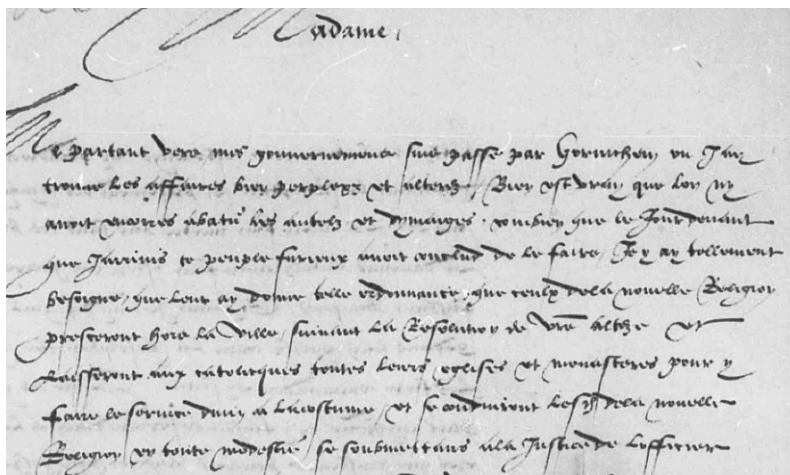 Madame,
Me partant vers mes gouvernemens suis passe par Gorinchem ou Jay
trouve les affaires bien perplexz et alterez, Bien est vray que lon ny
avoit encorres abatu les autelz et dymaiges, combien que le Jour devant
que Jarrivis ce peuple furieux avoit conclud de le faire, Je y ay tellement
besoigne, que leur ay donne telle ordonnance, que ceulx de la nouvelle Religion
presceront hors la ville, suivant la Resolution de vre alteze et
Laisseront aux catolicques toutes leurs eglises et monasteres pour y
faire le service divin a lacostume, et se conduiront lesd de la nouvelle
Religion en toute modestie, se soubmettans a la Justice de lofficier